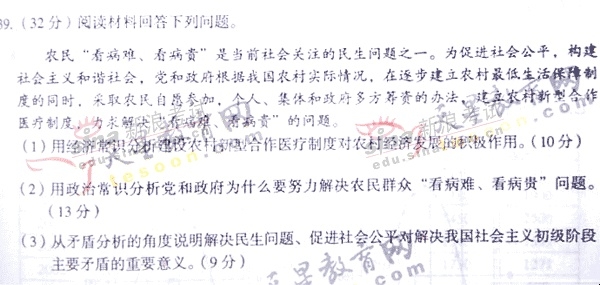 39.(32分)阅读材料回答下列问题。
农民“看病难、看病贵”是当前社会关注的民生问题之一。为促进社会公平，构建
社会主义和谐社会，党和政府根据我国农村实际情况，在逐步建立农村最低生活保障制
度的同时，采取农民自愿参加，个人、集体和政府多方筹资的办法，建立农村新型合作
医疗制度，力求解决“看病难、看病贵”的问题。
(1)用经济常识分析建设农村新型合作医疗制度对农村经济发展的积极作用。(10分)
(2)用政治常识分析党和政府为什么要努力解决农民群众“看病难、看病贵”问题。
(13分)
(3)从矛盾分析的角度说明解决民生问题、促进社会公平对解决我国社会主义初级阶段
主要矛盾的重要意义。(9分)
天星教育网
tesoon.com
新浪教育
edu.sina.com.cn
新浪教育
edu.sina.com.cn
天星教育网